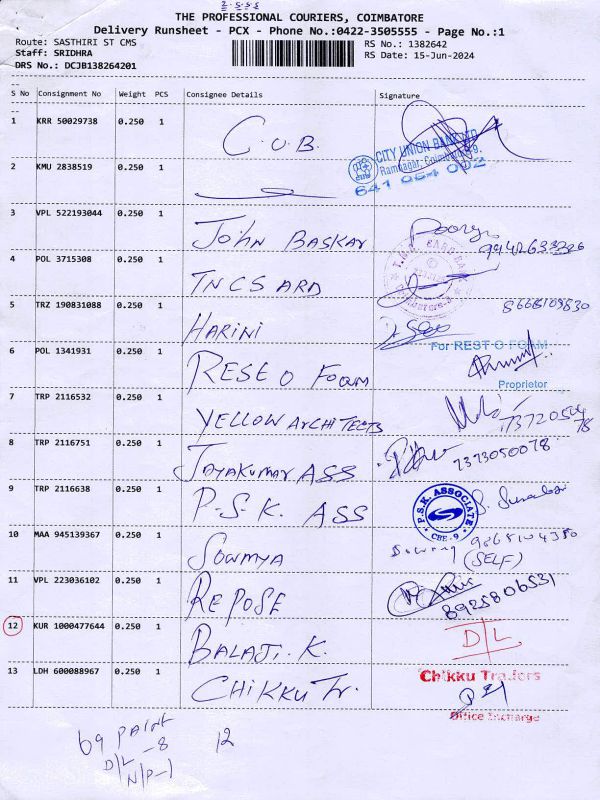 THE PROFESSIONAL COURIERS, COIMBATORE
Delivery Runsheet - PCX - Phone No.:0422-3505555 - Page No.:1
Route: SASTHIRI ST CMS RS No.: 1382642
Staff: SRIDHRA RS Date: 15-Jun-2024
DRS No.: DCJB138264201
S No Consignment No Weight PCS Consignee Details Signature
1 KRR 50029738 0.250 1 C.U.B.
CITY UNION BANK LTD
Ramnagar, Coimbatore-9.
641 054 002
2 KMU 2838519 0.250 1
3 VPL 522193044 0.250 1 John BASKAR
4 POL 3715308 0.250 1 TNCSARD
5 TRZ 190831088 0.250 1 HARINI 8668109830
For REST O FOAM
6 POL 1341931 0.250 1 REST O Foam
Proprietor
7 TRP 2116532 0.250 1 YELLOW ARCHITECTS
8 TRP 2116751 0.250 1 JAYAKUMAR ASS 7373050078
9 TRP 2116638 0.250 1 P.S.K. ASS
P.S.K. ASSOCIATE
CBE-9
10 MAA 945139367 0.250 1 SOWMYA
(SELF)
11 VPL 223036102 0.250 1 REPOSE 8925806531
12 KUR 1000477644 0.250 1 BALAJI. K. D/L
13 LDH 600088967 0.250 1 CHIKKU Tr.
Chikku Traders
Office Incharge
69 PAINT
D/L -8 12
N/P-1